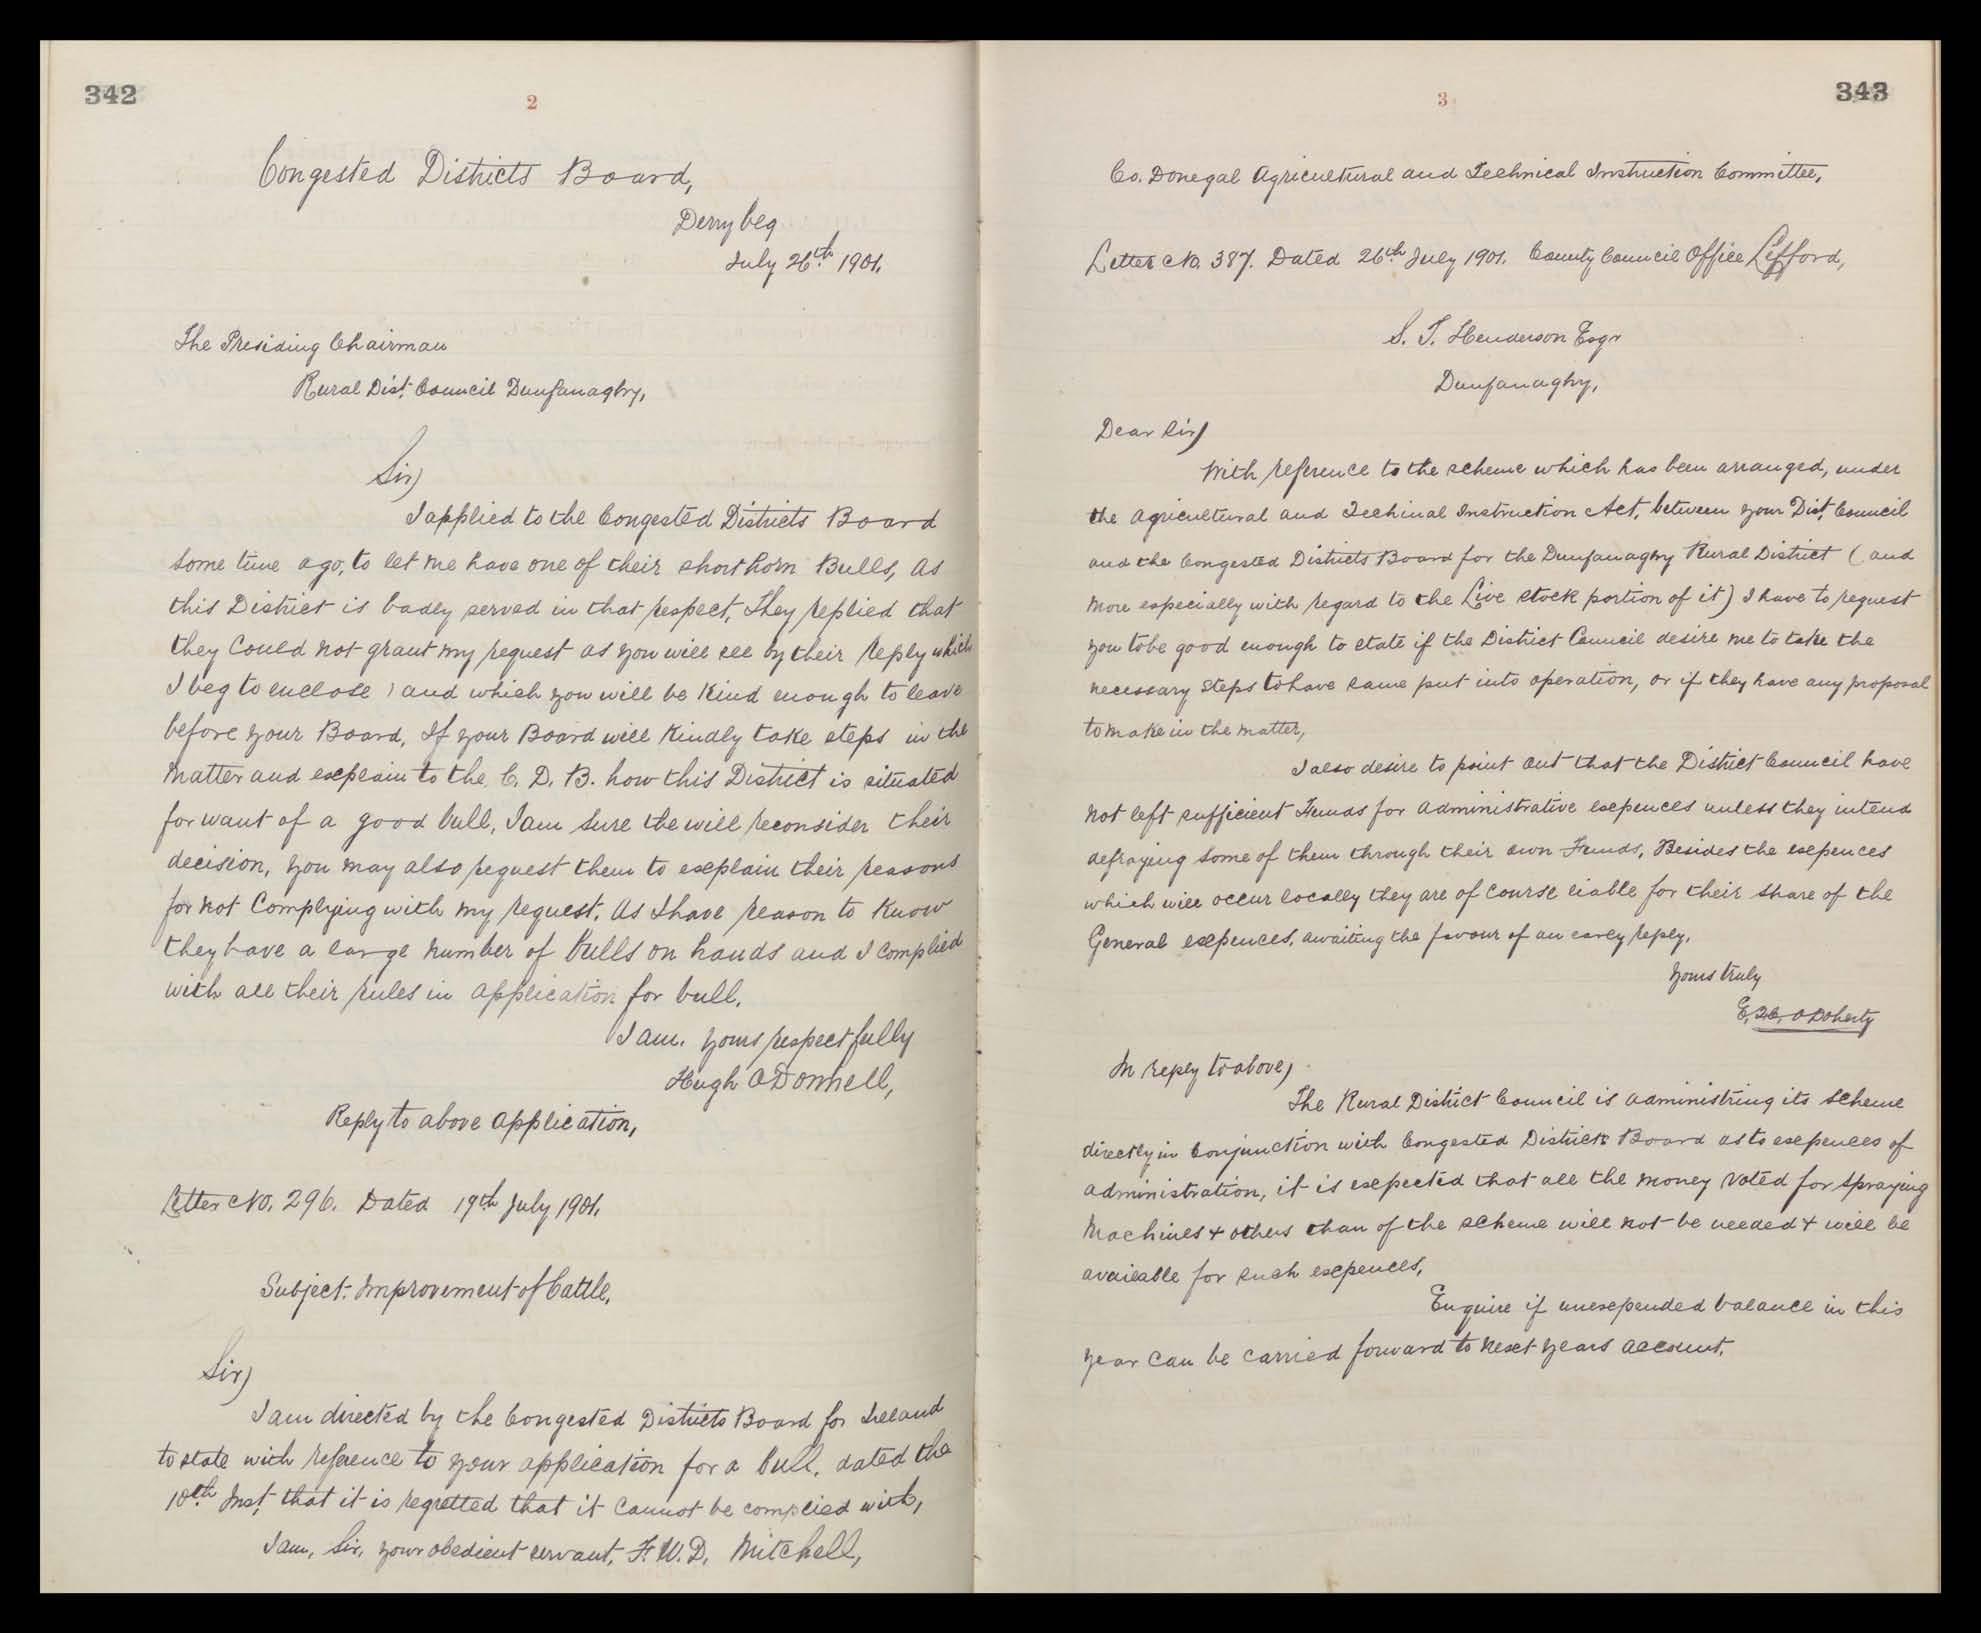 342
2
Congested Districts Board,
Derrybeg
July 26th 1901.
The Presiding Chairman
Rural Dist. Council Dunfanaghy,
Sir)
I applied to the Congested Districts Board
some time ago, to let me have one of their short horn Bulls, as
this District is badly served in that respect, They replied that
they could not grant my request as you will see by their reply which
I beg to enclose, and which you will be kind enough to leave
before your Board, If your Board will kindly take steps in the
matter and explain to the C. D. B. how this District is situated
for want of a good bull, I am sure the will reconsider their
decision, you may also request them to explain their reasons
for not complying with my request. As I have reason to know
they have a large number of bulls on hands and I complied
with all their rules in application for bull.
I am. yours respectfully
Hugh O Donnell,
Reply to above application,
Letter No. 296. Dated 19th July 1901.
Subject. Improvement of Cattle.
Sir)
I am directed by the Congested Districts Board for Ireland
to state with reference to your application for a bull. dated the
10th Inst, that it is regretted that it cannot be complied with,
I am, Sir, your obedient servant, F. W. D. Mitchell,
343
3
Co. Donegal Agricultural and Technical Instruction Committee,
Letter No. 387. Dated 26th July 1901. County Council Office Lifford,
S. T. Henderson Esqr
Dunfanaghy,
Dear Sir)
With reference to the scheme which has been arranged, under
the Agricultural and Techinal Instruction Act, between your Dist. Council
and the Congested Districts Board for the Dunfanaghy Rural District (and
more especially with regard to the Live stock portion of it) I have to request
you to be good enough to state if the District Council desire me to take the
necessary steps to have same put into operation, or if they have any proposal
to make in the matter,
I also desire to point out that the District Council have
not left sufficient Funds for administrative expences unless they intend
defraying some of them through their own Funds, Besides the expences
which will occur locally they are of course liable for their share of the
General expences, awaiting the favour of an early reply,
yours truly
O Doherty
In reply to above,
The Rural District Council is administring its scheme
directly in conjunction with Congested Districts Board as to expences of
administration, it is expected that all the money voted for spraying
machines & others than of the scheme will not be needed & will be
available for such expences,
Enquire if unexpended balance in this
year can be carried forward to next years account.